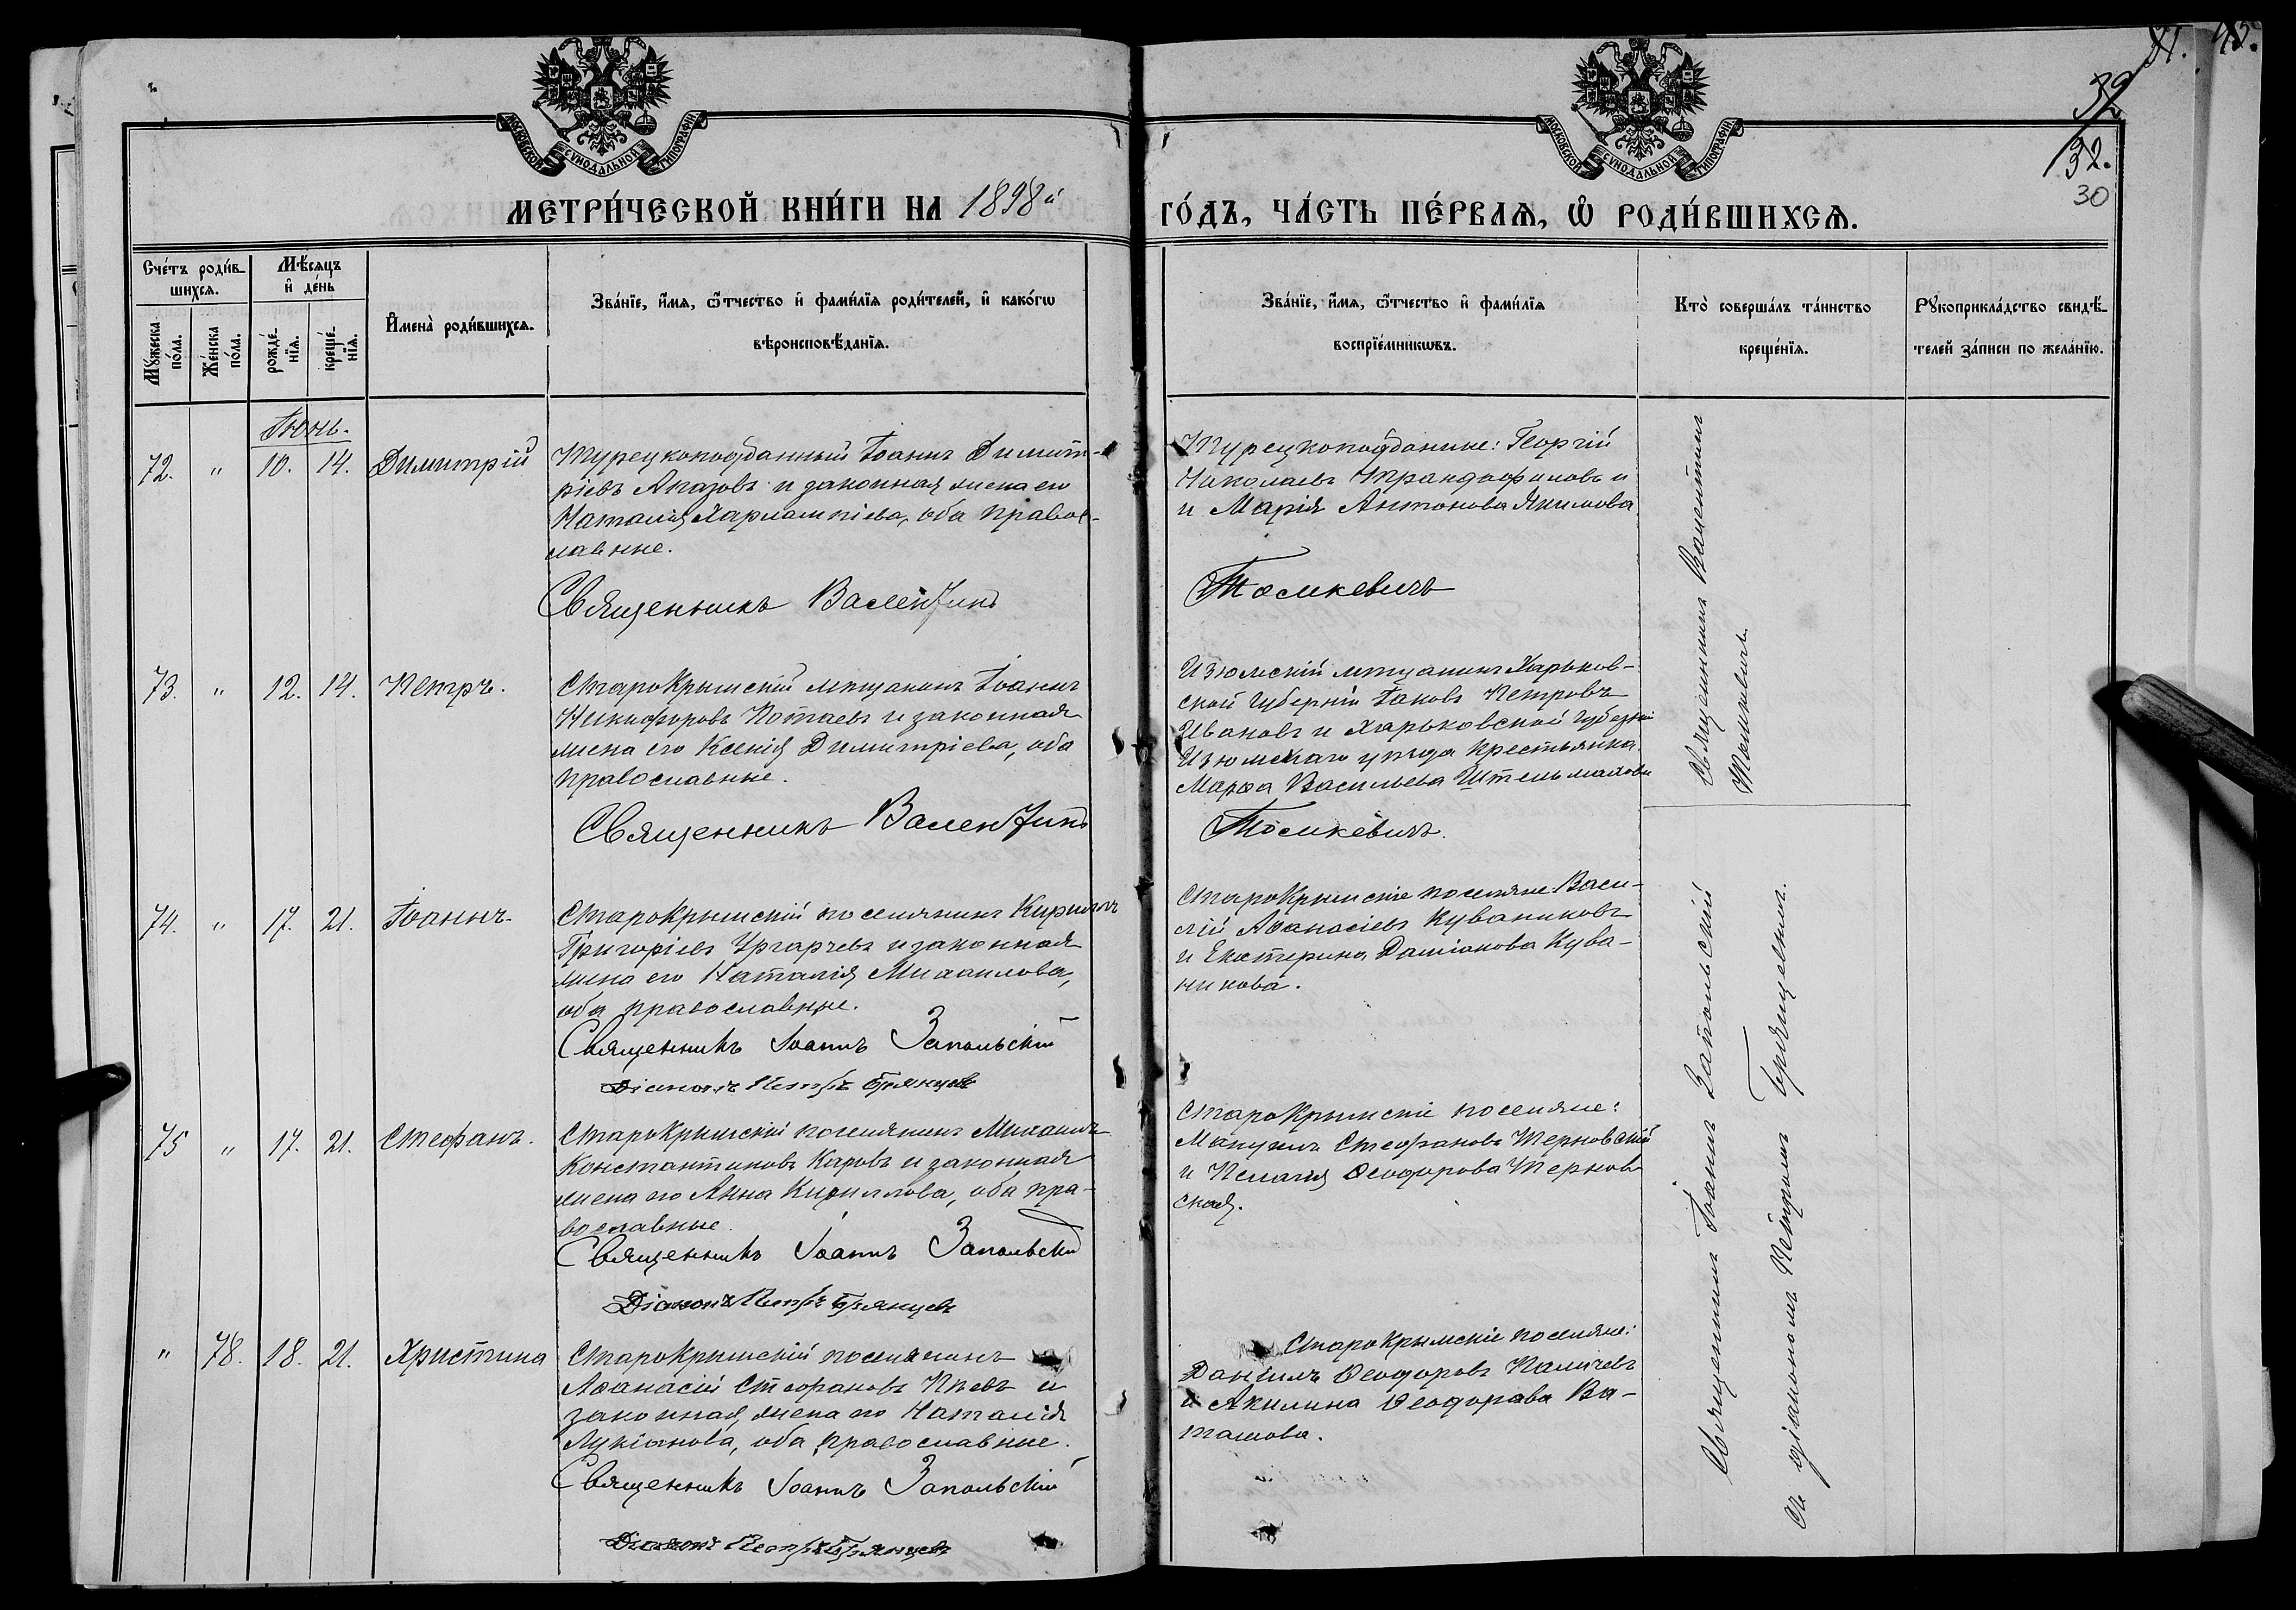 41. 45.
32
32.
30
МОСКОВСКОЙ СѴНОДАЛЬНОЙ ТИПОГРАФІИ
МОСКОВСКОЙ СѴНОДАЛЬНОЙ ТИПОГРАФІИ
МЕТРИ́ЧЕСКОЙ КНИ́ГИ НА 1898й
ГО́ДЪ, ЧА́СТЬ ПЕ́РВАѦ, Ѡ҆ РОДИ́ВШИХСѦ.
Сче́тъ роди́в-
шихсѧ.
Мꙋ́жеска по́ла.
Же́нска по́ла.
Мѣ́сѧцъ
и҆ де́нь
рожде́-
нїѧ.
креще́-
нїѧ.
И҆мена̀ роди́вшихсѧ.
Зва́нїе, и҆́мѧ, ѻ҆́тчество и҆ фами́лїѧ роди́телей, и҆ како́гѡ
вѣроисповѣ́данїѧ.
Зва́нїе, и҆́мѧ, ѻ҆́тчество и҆ фами́лїѧ
воспрїе́мникѡвъ.
Кто̀ соверша́лъ та́инство
креще́нїѧ.
Рꙋкоприкла́дство свидѣ́-
телей за́писи по жела́нїю.
Іюнь.
72. " 10. 14. Димитрій
Турецкоподданный Іоаннъ Димит-
ріевъ Аказовъ и законная жена его
Наталія Харлампіева, оба правос-
лавные.
Священникъ Валентинъ
Турецкоподданные: Георгій
Николаевъ Трандафиловъ и
и Марія Антонова Якимова
Томкевичъ
73. " 12. 14. Петръ.
Старокрымскій мѣщанинъ Іоаннъ
Никифоровъ Потаевъ и законная
жена его Ксенія Димитріева, оба
православные.
Священникъ Валентинъ
Изюмскій мѣщанинъ Харьков-
ской губерніи Іаковъ Петровъ
Ивановъ и Харьковской губерніи
Изюмскаго уѣзда крестьянка
Марѳа Васильева Штельмахова
Томкевичъ.
Священникъ Валентинъ
Томкевичъ.
74. " 17. 21. Іоаннъ.
Старокрымскій поселянинъ Кириллъ
Григоріевъ Ургарчевъ и законная
жена его Наталія Михаилова,
оба православные.
Священникъ Іоаннъ Запольскій
Діаконъ Петръ Брянцевъ
Старокрымскіе поселяне Васи-
лій Аѳанасіевъ Куваниковъ
и Екатерина Даміанова Кува-
никова.
75 " 17. 21. Стефанъ.
Старокрымскій поселянинъ Михаилъ
Константиновъ Каровъ и законная
жена его Анна Кириллова, оба пра-
вославные.
Священникъ Іоаннъ Запольскій
Діаконъ Петръ Брянцевъ
Старокрымскіе поселяне:
Мануилъ Стефановъ Терновскій
и Пелагія Ѳеодорова Тернов-
ская.
" 78. 18. 21. Христина
Старокрымскій поселянинъ
Аѳанасій Стефановъ Піевъ и
законная жена его Наталія
Лукіанова, оба православные.
Священникъ Іоаннъ Запольскій
Діаконъ Петръ Брянцевъ
Старокрымскіе поселяне:
Даніилъ Ѳеодоровъ Паличевъ
и Акилина Ѳеодорова Ва-
ташова.
Священникъ Іоаннъ Запольскій
съ діакономъ Петромъ Брянцевымъ.